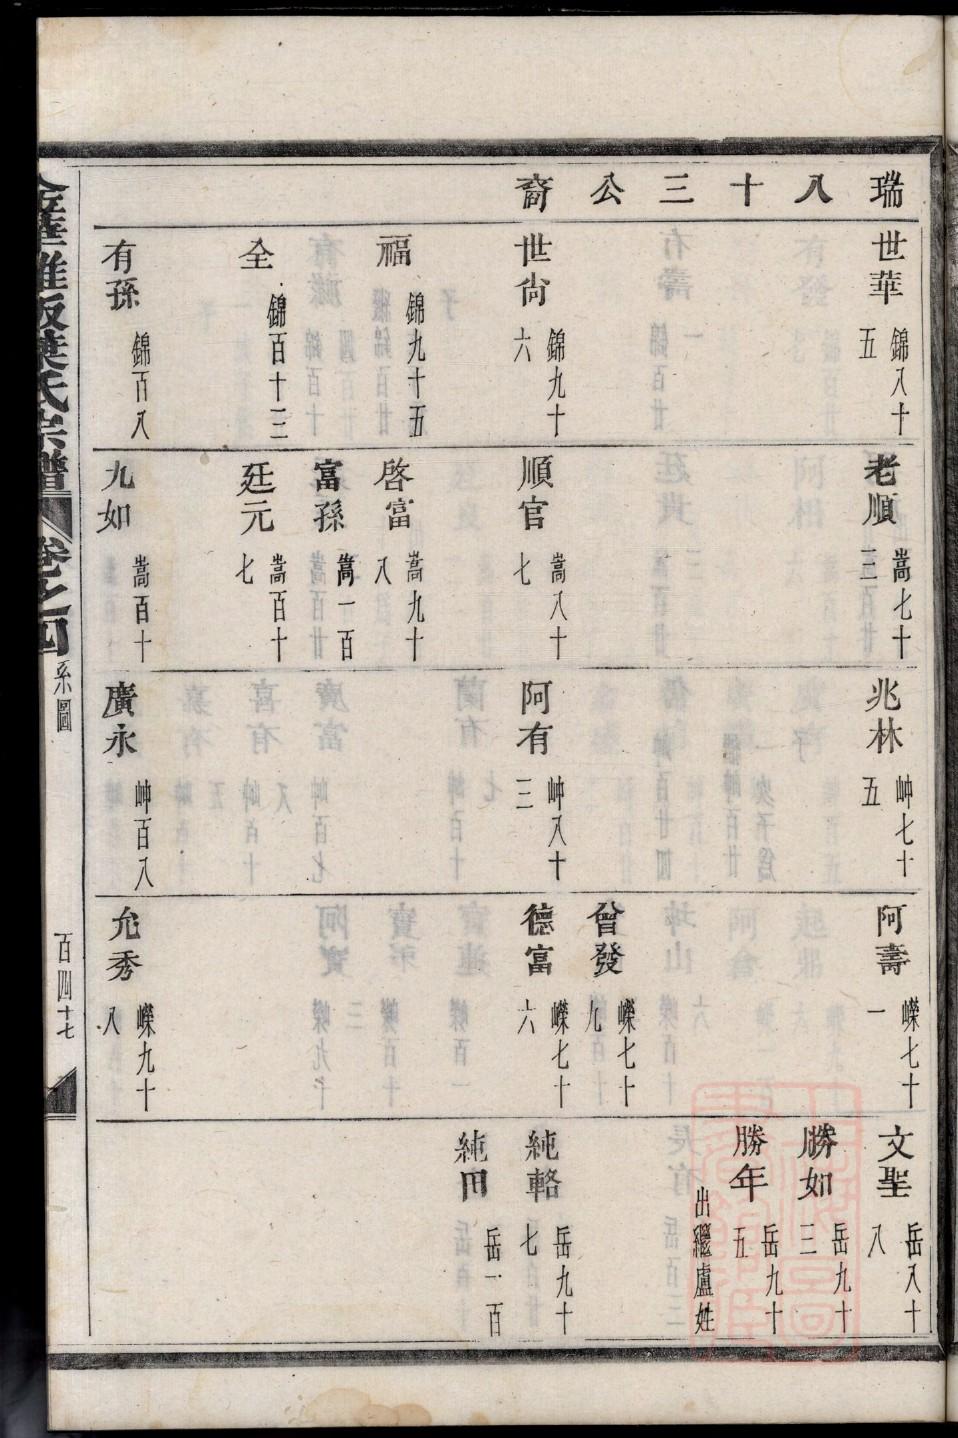 瑞八十三公裔
世華 錦八十五
世尙 錦九十六
福 錦九十五
全 錦百十三
有孫 錦百八
老順 嵩七十三
順官 嵩八十七
啓富 嵩九十八
富孫 嵩一百
廷元 嵩百十七
九如 嵩百十
兆林 岫七十五
阿有 岫八十三
廣永 岫百八
阿壽 嶸七十一
曾發 嶸七十九
德富 嶸七十六
允秀 嶸九十八
文聖 岳八十八
勝如 岳九十三
勝年 岳九十五
出繼盧姓
純輅 岳九十七
純田 岳一百
葉氏宗譜 卷之四 系圖 百四十七